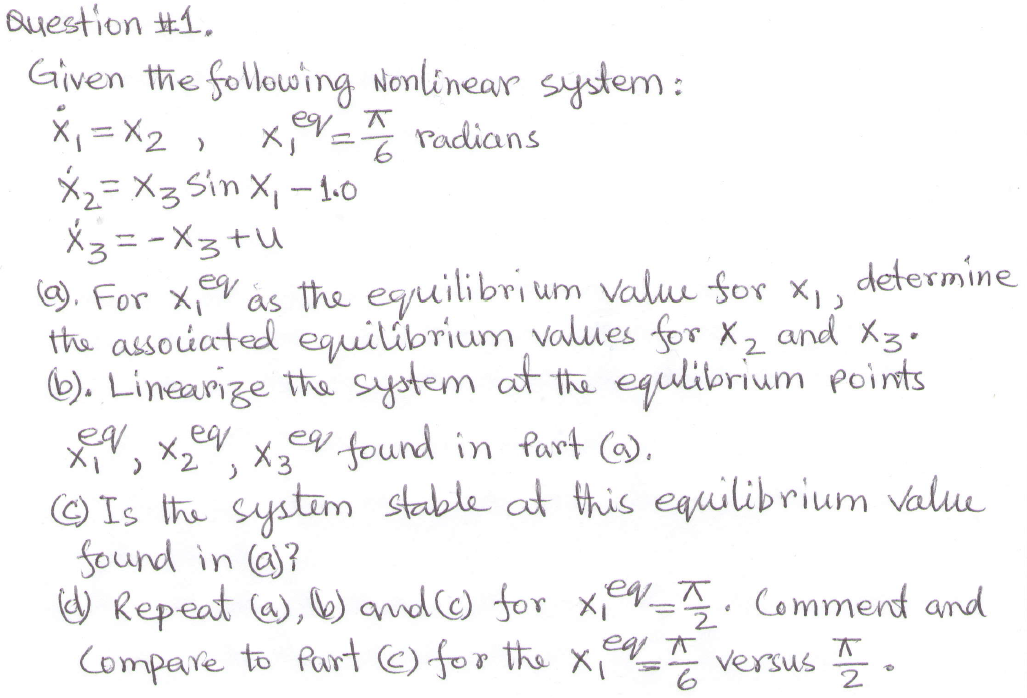 Question #1.
Given the following Nonlinear system:
ẋ₁ = x₂ , x₁^eq = π/6 radians
ẋ₂ = x₃ Sin x₁ − 1.0
ẋ₃ = −x₃ + u
(a). For x₁^eq as the equilibrium value for x₁, determine
the associated equilibrium values for x₂ and x₃.
(b). Linearize the system at the equlibrium points
x₁^eq, x₂^eq, x₃^eq found in Part (a).
(c) Is the system stable at this equilibrium value
found in (a)?
(d) Repeat (a), (b) and (c) for x₁^eq = π/2. Comment and
Compare to Part (c) for the x₁^eq = π/6 versus π/2.